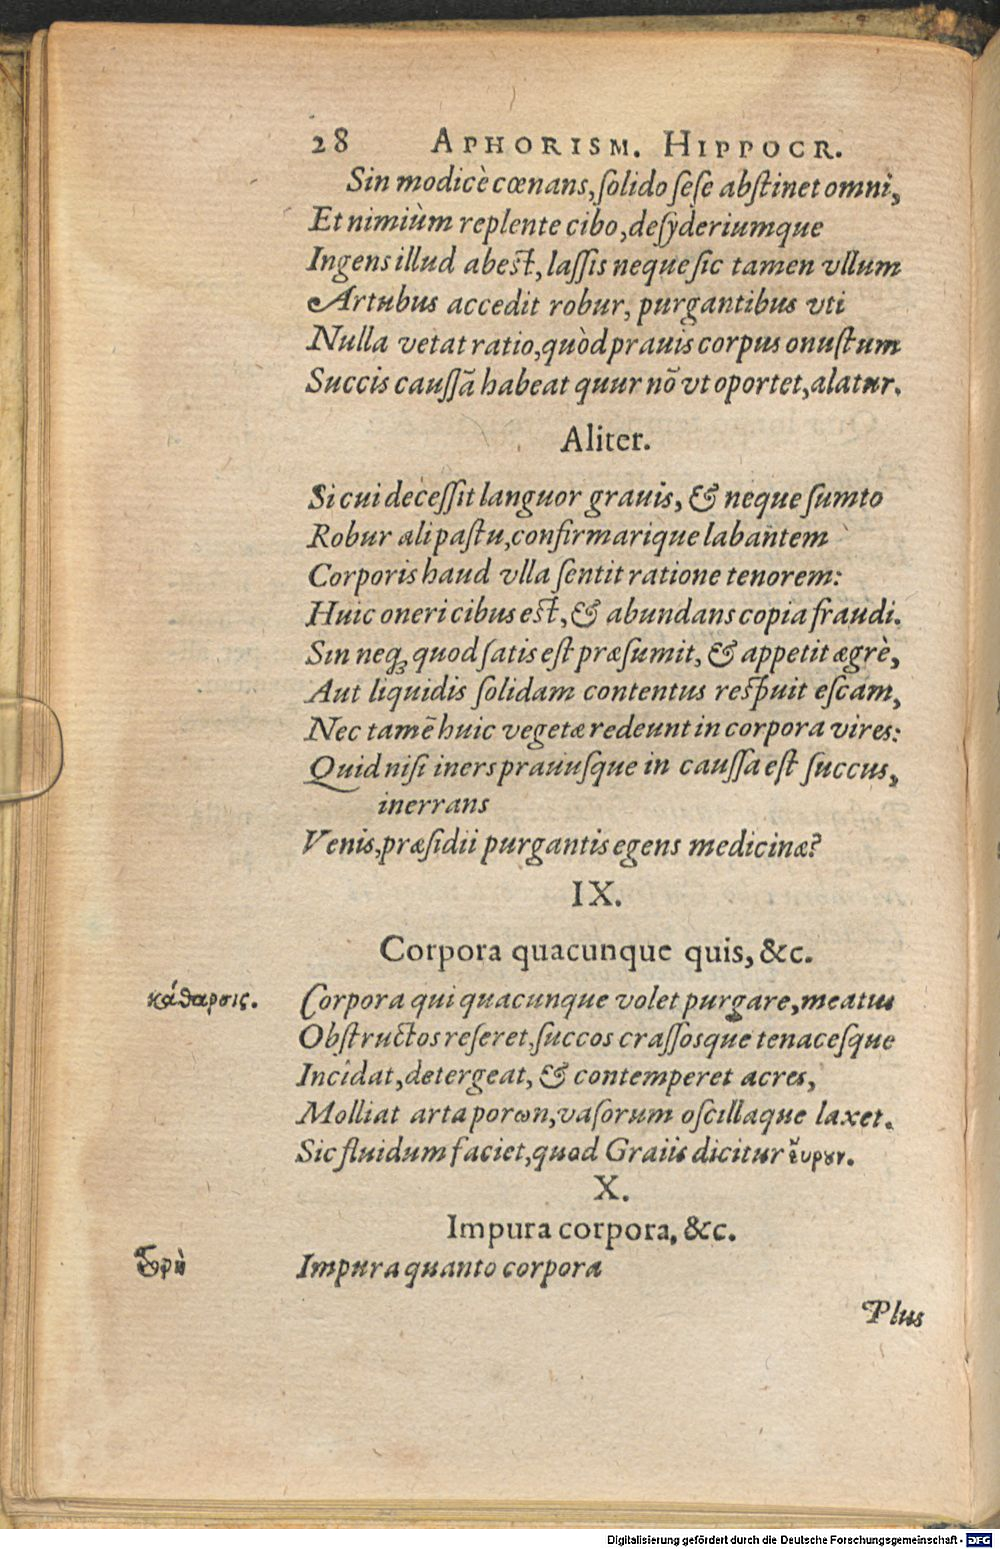 28 APHORISM. HIPPOCR.
Sin modicè cœnans, ſolido ſeſe abſtinet omni,
Et nimiùm replente cibo, deſyderiumque
Ingens illud abest, laſſis neque ſic tamen vllum
Artubus accedit robur, purgantibus vti
Nulla vetat ratio, quòd prauis corpus onuſtum
Succis cauſſã habeat quur nõ vt oportet, alatur.
Aliter.
Si cui deceſſit languor grauis, & neque ſumto
Robur ali paſtu, confirmarique labantem
Corporis haud vlla ſentit ratione tenorem:
Huic oneri cibus est, & abundans copia fraudi.
Sin neq; quod ſatis eſt præſumit, & appetit ægrè,
Aut liquidis ſolidam contentus respuit eſcam,
Nec tamẽ huic vegetæ redeunt in corpora vires:
Quid niſi iners prauuſque in cauſſa eſt ſuccus,
inerrans
Venis, præſidii purgantis egens medicinæ?
IX.
Corpora quacunque quis, &c.
κάθαρσις. Corpora qui quacunque volet purgare, meatus
Obſtructos reſeret, ſuccos craſſosque tenaceſque
Incidat, detergeat, & contemperet acres,
Molliat arta porωn, vaſorum oſcillaque laxet.
Sic fluidum faciet, quod Graiis dicitur ἔυρουν.
X.
Impura corpora, &c.
Impura quanto corpora
Plus
Digitalisierung gefördert durch die Deutsche Forschungsgemeinschaft - DFG